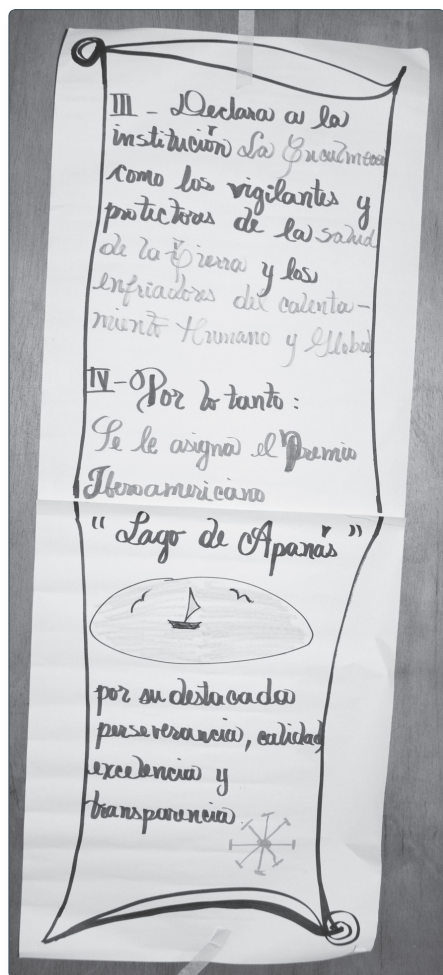 III - Declara a la
institución La Ecuménica
como los vigilantes y
protectores de la salud
de la Tierra y los
enfriadores del calenta-
miento Humano y Global
IV - Por lo tanto:
Se le asigna el Premio
Iberoamericano
"Lago de Apanás"
por su destacada
perseverancia, calidad,
excelencia y
transparencia